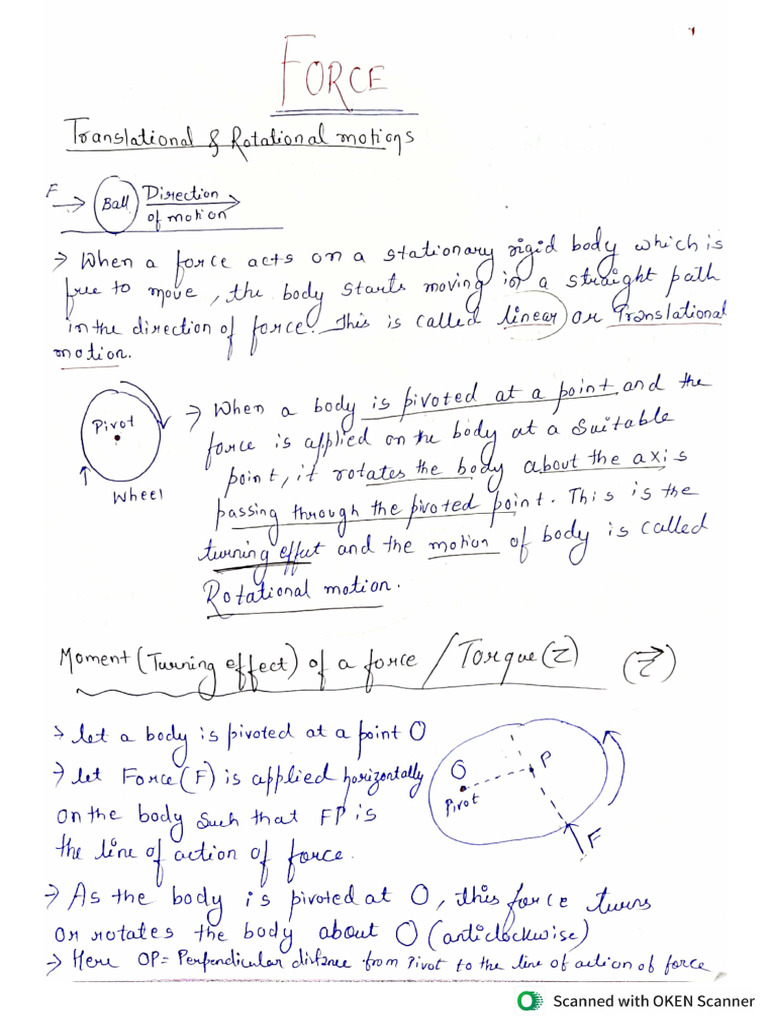 1
FORCE
Translational & Rotational motions
F
Ball
Direction
of motion
→ When a force acts on a stationary rigid body which is
free to move, the body starts moving in a straight path
in the direction of force. This is called linear or Translational
motion.
Pivot
Wheel
→ When a body is pivoted at a point and the
force is applied on the body at a suitable
point, it rotates the body about the axis
passing through the pivoted point. This is the
turning effect and the motion of body is called
Rotational motion.
Moment (Turning effect) of a force / Torque (τ) (τ⃗)
→ let a body is pivoted at a point O
→ let Force (F) is applied horizontally
on the body such that FP is
the line of action of force.
O
Pivot
P
F
→ As the body is pivoted at O, this force turns
or rotates the body about O (anticlockwise)
→ Here OP = Perpendicular distance from Pivot to the line of action of force
Scanned with OKEN Scanner